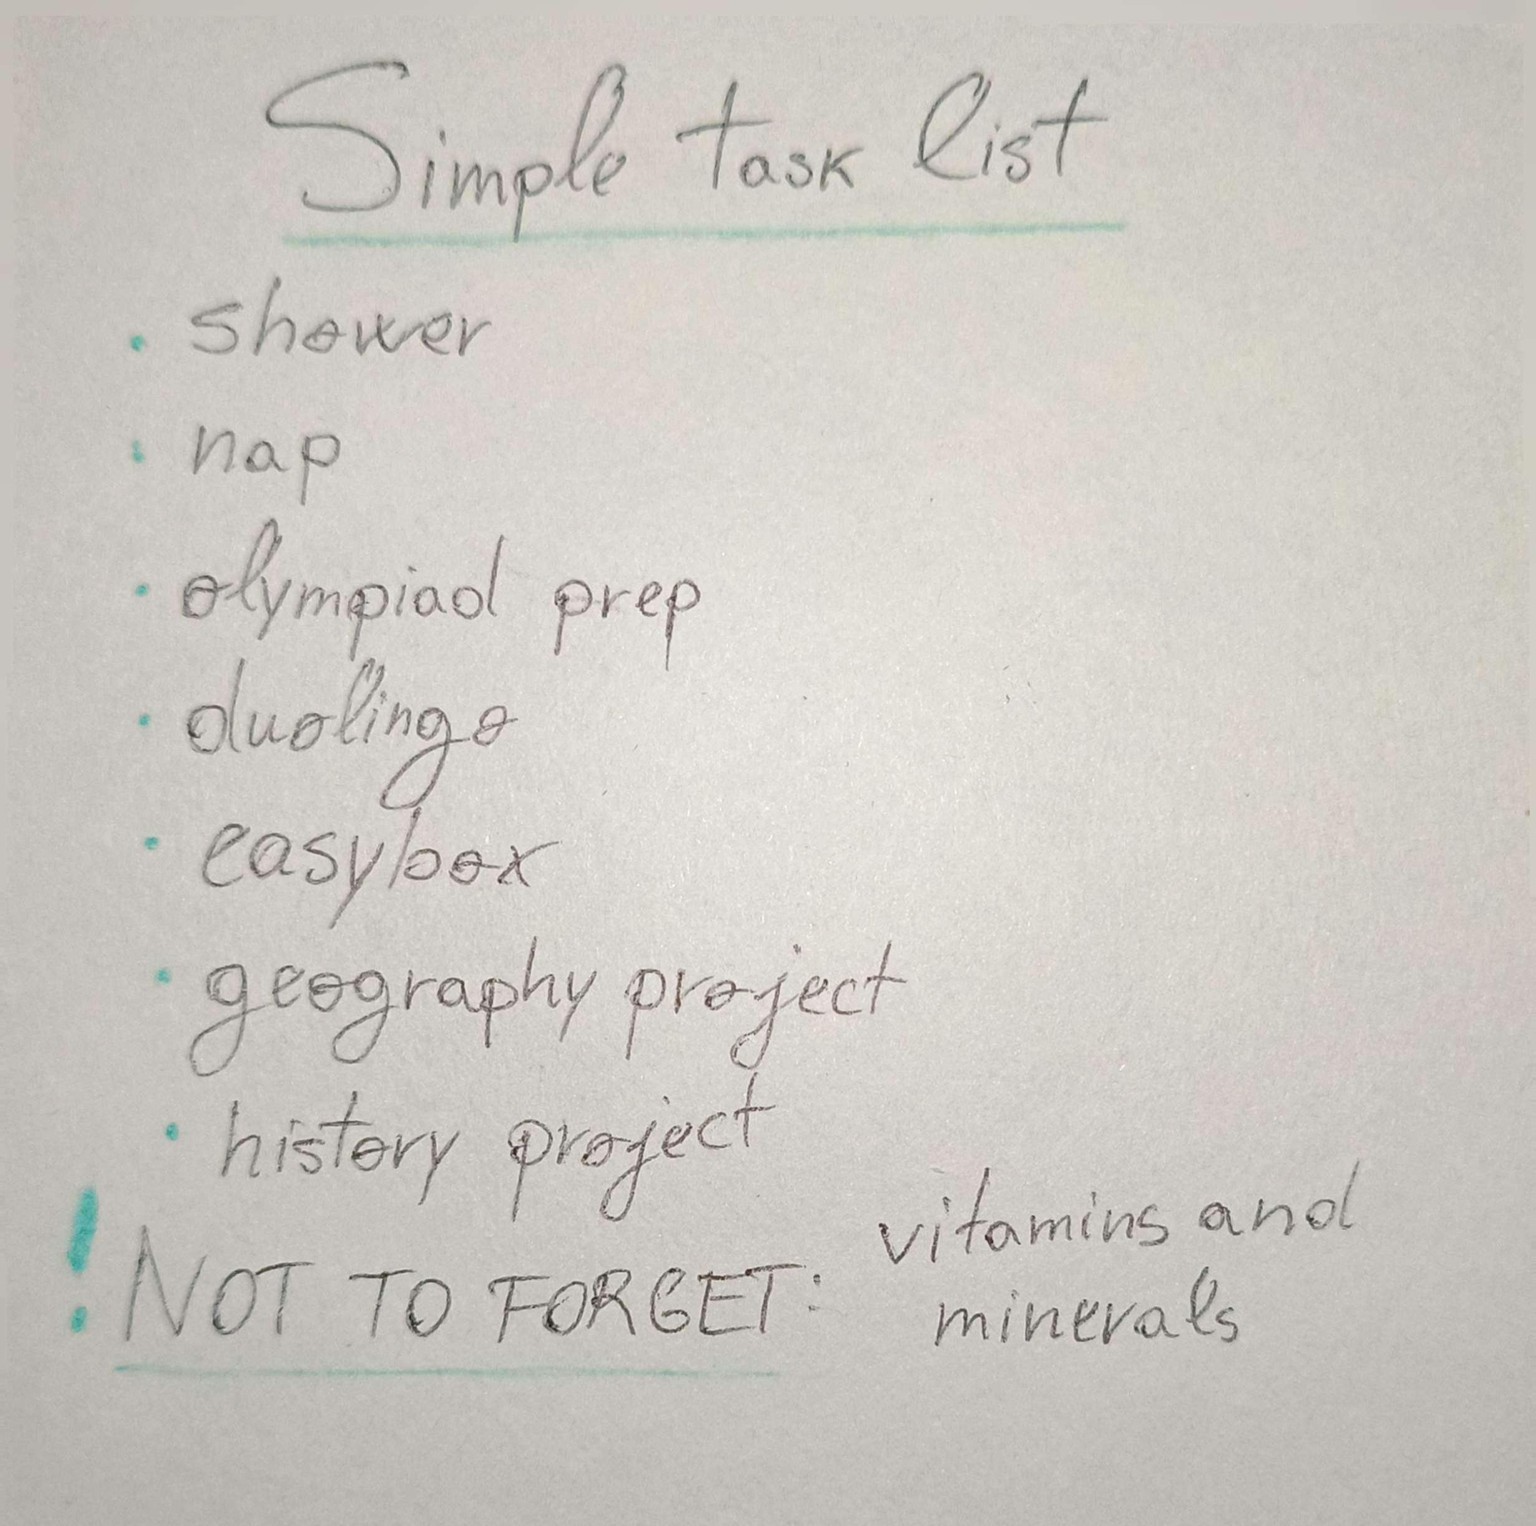 Simple task list
• shower
• nap
• olympiad prep
• duolingo
• easybox
• geography project
• history project
! NOT TO FORGET: vitamins and
minerals